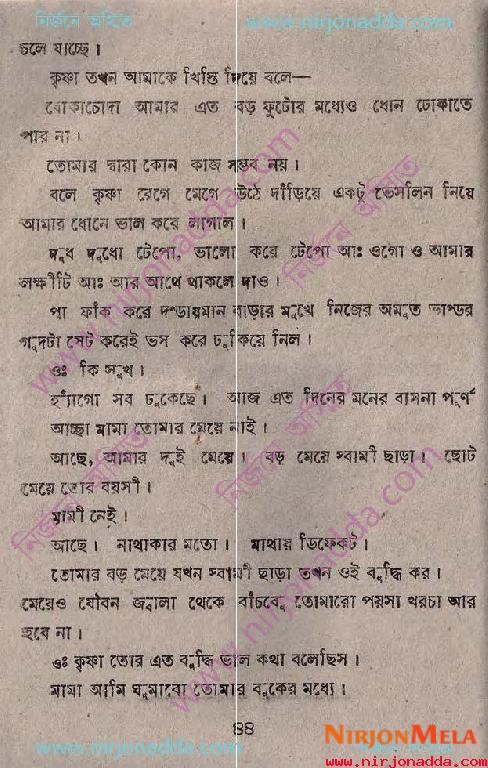 নির্জনে অহিত www.nirjonadda.com নির্জনে
চলে যাচ্ছে।
কৃষ্ণা তখন আমাকে খিস্তি দিয়ে বলে—
বোকাচোদা আমার এত বড় ফুটোর মধ্যেও ধোন ঢোকাতে
পার না।
তোমার দ্বারা কোন কাজ সম্ভব নয়।
বলে কৃষ্ণা রেগে মেগে উঠে দাঁড়িয়ে একটু ভেসলিন নিয়ে
আমার ধোনে ভাল করে লাগাল।
দুধ দুধো টেপো, ভালো করে টেপো আঃ ওগো ও আমার
লক্ষীটি আঃ আর আথে থাকলে দাও।
পা ফাঁক করে দণ্ডায়মান বাড়ার মুখে নিজের অমৃত ভাণ্ডর
গুদটা সেট করেই ভস করে ঢুকিয়ে নিল।
ওঃ কি সুখ।
হ্যাঁগো সব ঢুকেছে। আজ এত দিনের মনের বাসনা পূর্ণ
আচ্ছা মামা তোমার মেয়ে নাই।
আছে, আমার দুই মেয়ে। বড় মেয়ে স্বামী ছাড়া। ছোট
মেয়ে তোর বয়সী।
মামী নেই।
আছে। নাথাকার মতো। মাথায় ডিফেকট।
তোমার বড় মেয়ে যখন স্বামী ছাড়া তখন ওই বুদ্ধি কর।
মেয়েও যৌবন জ্বালা থেকে বাঁচবে তোমারো পয়সা খরচা আর
হবে না।
ওঃ কৃষ্ণা তোর এত বুদ্ধি ভাল কথা বলেছিস।
মামা আমি ঘুমাবো তোমার বুকের মধ্যে।
৪৪
NIRJONMELA
www.nirjonadda.com